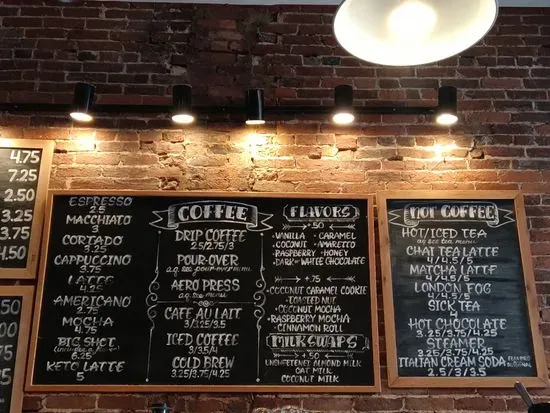 4.75
7.25
2.50
3.25
3.75
4.50
ESPRESSO
2.5
MACCHIATO
3
CORTADO
3.25
CAPPUCCINO
3.75
LATTE
4.25
AMERICANO
2.75
MOCHA
4.75
BIG SHOT
6.25
KETO LATTE
5
COFFEE
DRIP COFFEE
2.5/2.75/3
POUR-OVER
a.q. see pour-over menu
AERO PRESS
a.q. see menu
CAFE AU LAIT
3/3.25/3.5
ICED COFFEE
3/3.5/4
COLD BREW
3.25/3.75/4.25
FLAVORS
+.50
VANILLA • CARAMEL
COCONUT • AMARETTO
RASPBERRY • HONEY
DARK OR WHITE CHOCOLATE
+.75
•COCONUT CARAMEL COOKIE
•TOASTED NUT
•COCONUT MOCHA
•RASPBERRY MOCHA
•CINNAMON ROLL
MILK SWAPS
+.50
UNSWEETENED ALMOND MILK
OAT MILK
COCONUT MILK
NOT COFFEE
HOT/ICED TEA
a.q. see tea menu
CHAI TEA LATTE
4/4.5/5
MATCHA LATTE
4/4.5/5
LONDON FOG
4/4.5/5
SICK TEA
4
HOT CHOCOLATE
3.25/3.75/4.25
STEAMER
3.25/3.75/4.25
ITALIAN CREAM SODA
2.5/3/3.5